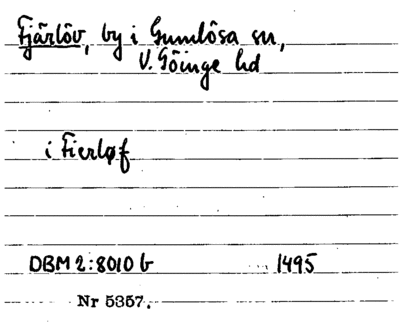 Fjärlöv, by i Gumlösa sn,
V. Göinge hd
i Fierløf
DBM 2:8010 b 1495
Nr 5357.